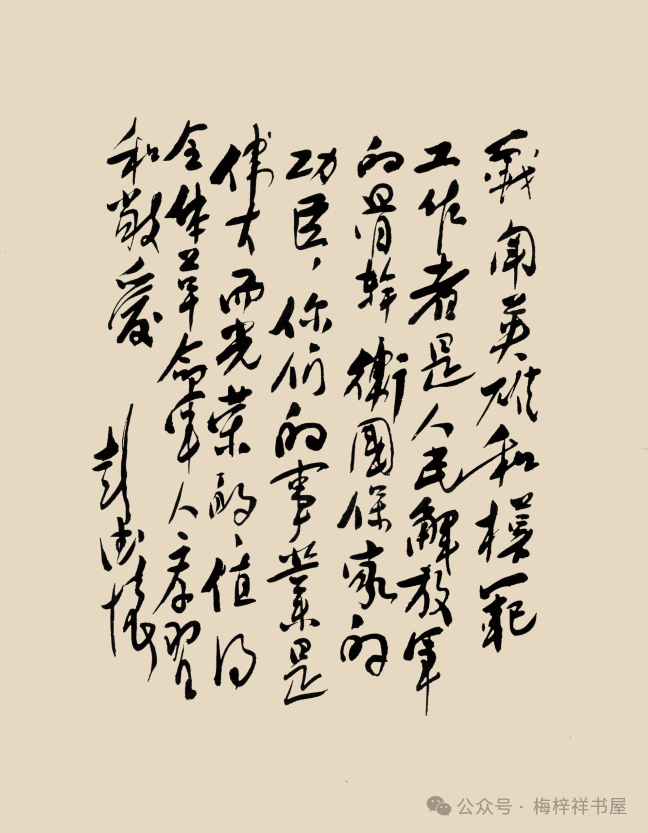 戰鬥英雄和模範
工作者是人民解放軍
的骨幹衛國保家的
功臣，你们的事業是
偉大而光荣的，值得
全体革命軍人学習
和敬愛
彭德懷
公众号 · 梅梓祥书屋